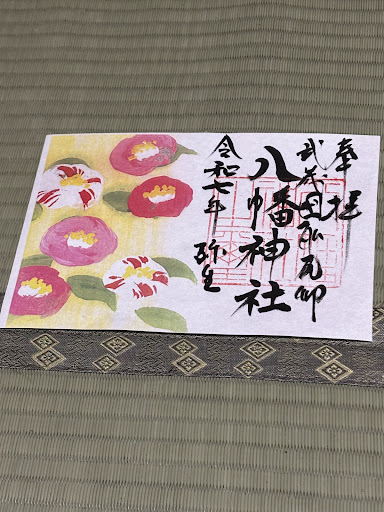 奉拝
武蔵国
八幡神社
令和七年 弥生